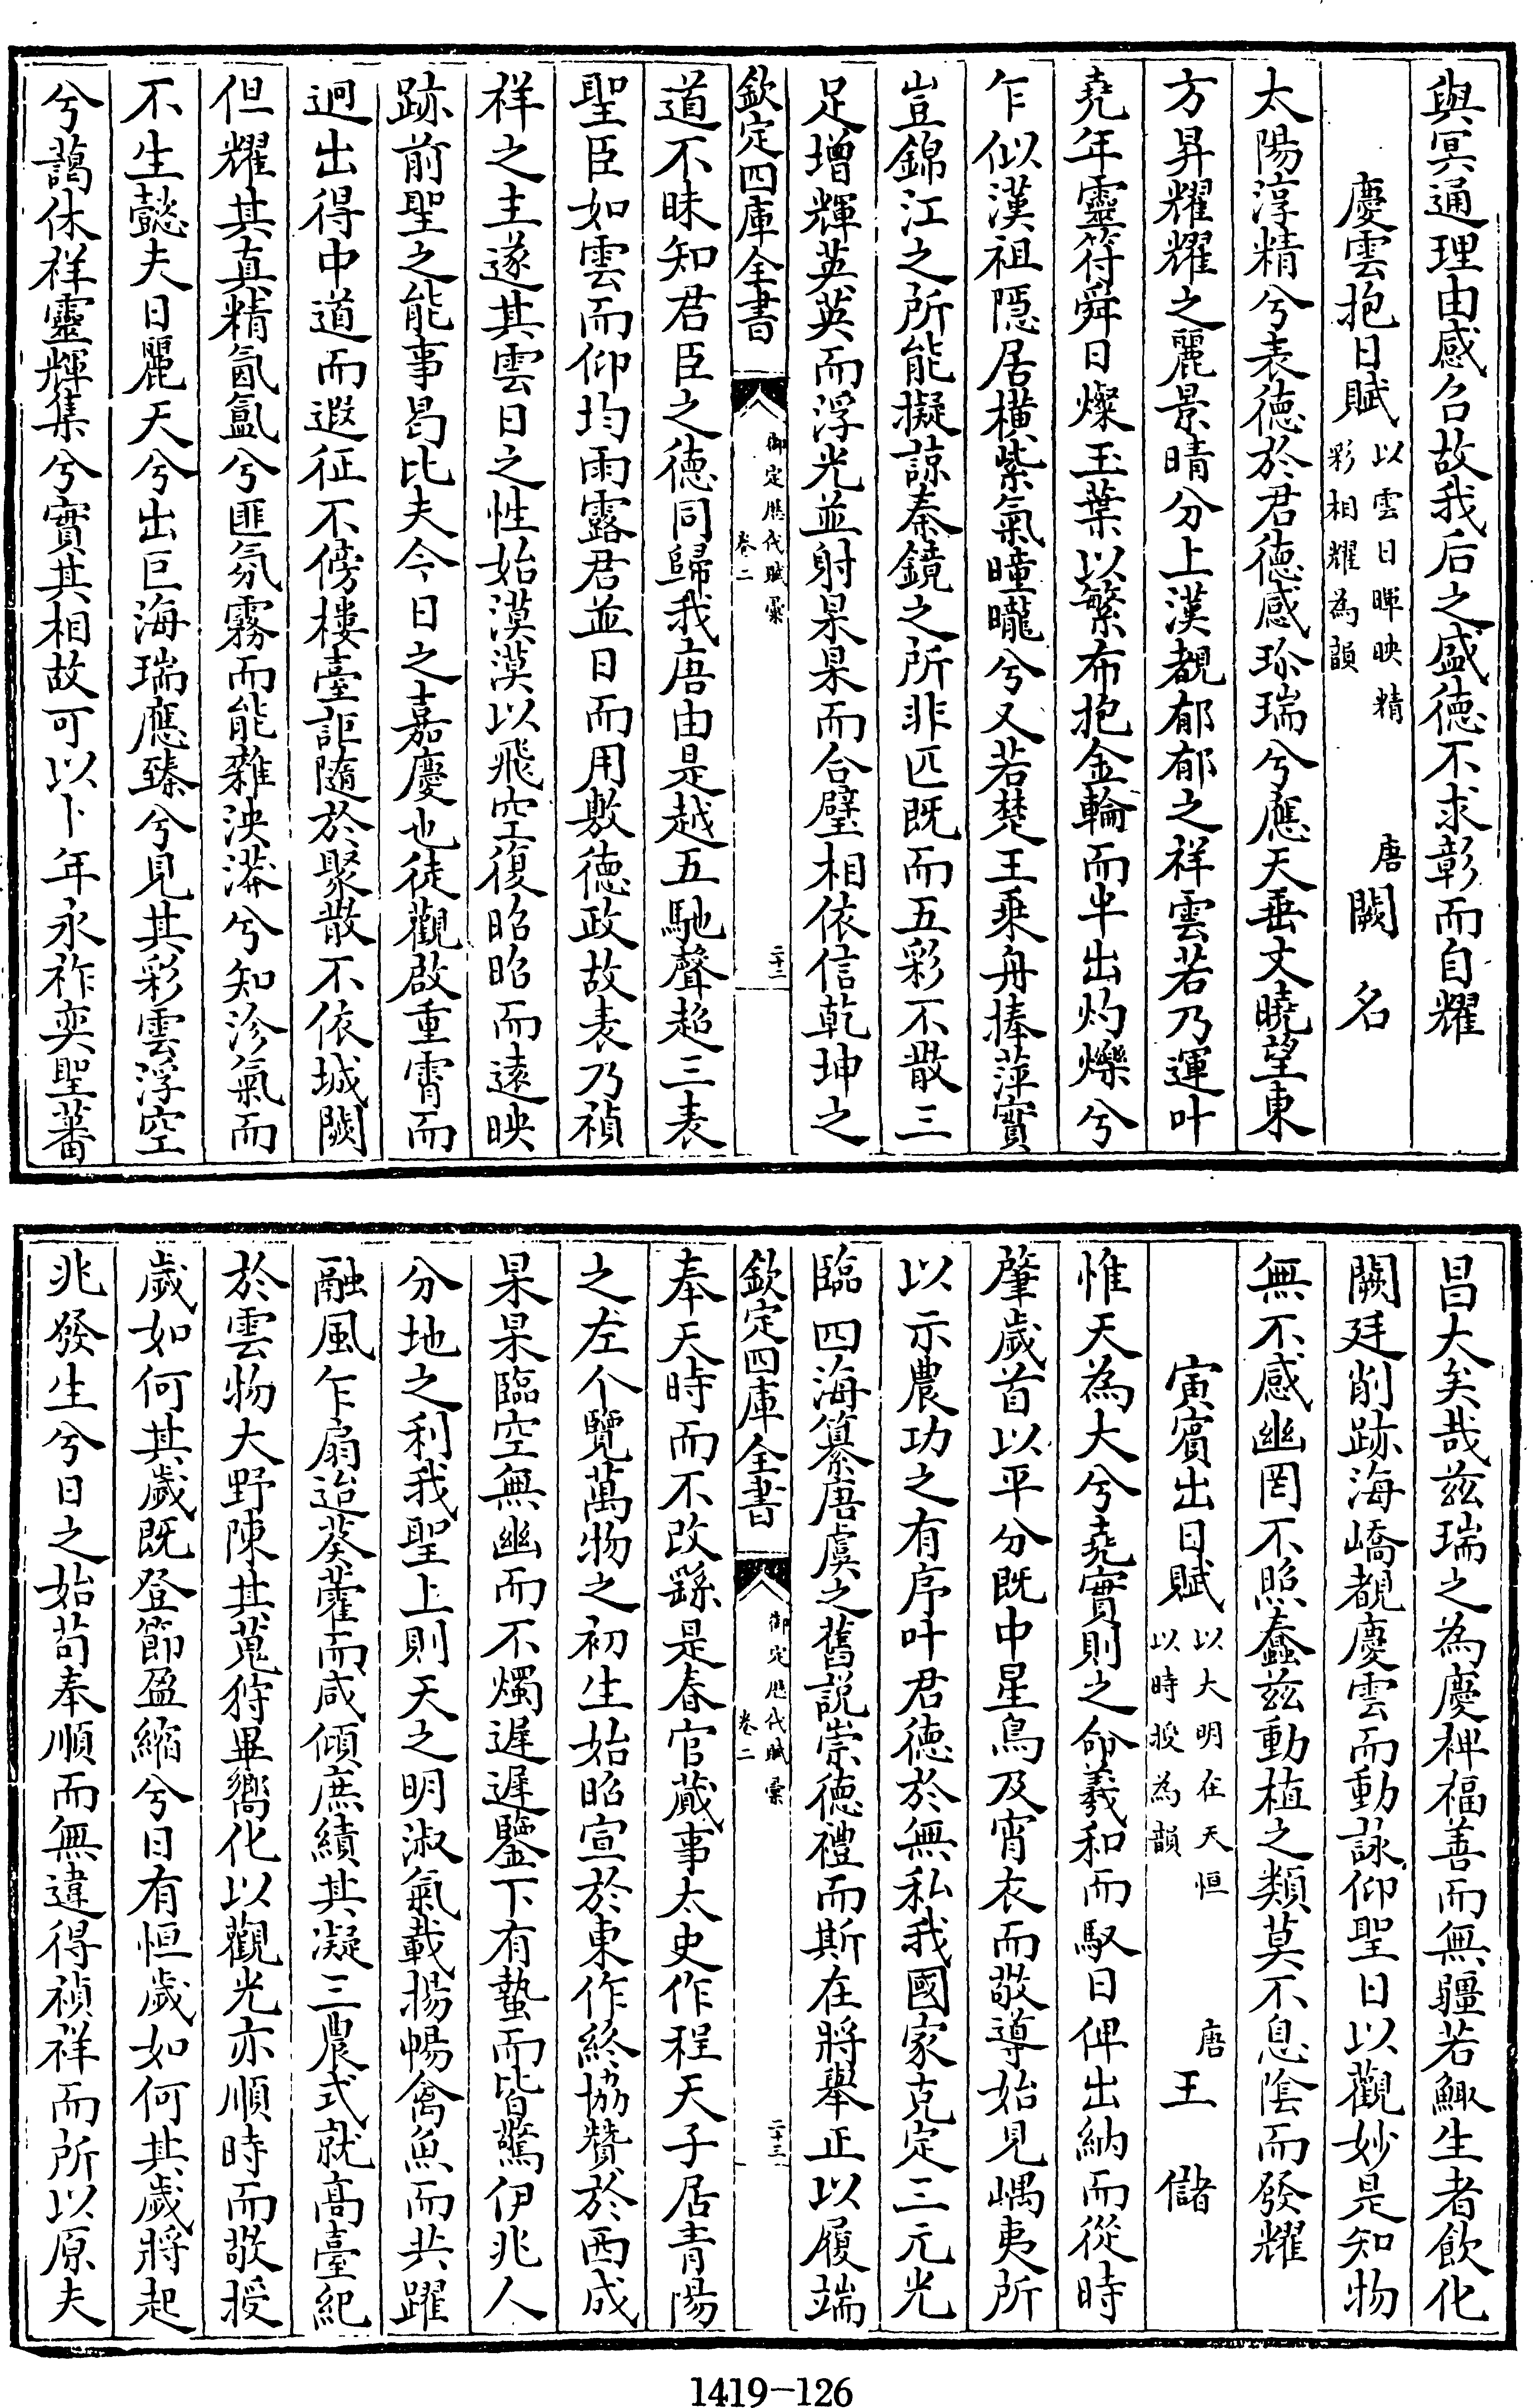 與冥通理由感召故我后之盛德不求彰而自耀
慶雲抱日賦以雲日暉映精彩相耀為韻 唐闕名
太陽淳精兮表德於君德感珍瑞兮應天垂文曉望東
方昇耀耀之麗景晴分上漢覩郁郁之祥雲若乃運叶
堯年靈符舜日燦玉葉以繁布抱金輪而半出灼爍兮
乍似漢祖隱居橫紫氣曈曨兮又若楚王乘舟捧萍實
豈錦江之所能擬諒秦鏡之所非匹既而五彩不散三
足增輝英英而浮光並射杲杲而合璧相依信乾坤之
欽定四庫全書 御定歷代賦彙 卷二 二十二
道不昧知君臣之德同歸我唐由是越五馳聲超三表
聖臣如雲而仰均雨露君並日而用敷德政故表乃禎
祥之主遂其雲日之性始漠漠以飛空復昭昭而遠映
跡前聖之能事曷比夫今日之嘉慶也徒觀啟重霄而
迥出得中道而遐征不傍樓臺詎隨於聚散不依城闕
但耀其真精氤氳兮匪氛霧而能雜泱漭兮知沴氣而
不生懿夫日麗天兮出巨海瑞應臻兮見其彩雲浮空
兮藹休祥靈輝集兮實其相故可以卜年永祚奕聖蕃
昌大矣哉茲瑞之為慶裨福善而無疆若鯫生者飲化
闕廷削跡海嶠覩慶雲而動詠仰聖日以觀妙是知物
無不感幽罔不照蠢茲動植之類莫不息陰而發耀
寅賓出日賦以大明在天恒以時授為韻 唐王儲
惟天為大兮堯實則之命羲和而馭日俾出納而從時
肇歲首以平分既中星鳥及宵衣而敬導始見嵎夷所
以示農功之有序叶君德於無私我國家克定三元光
臨四海纂唐虞之舊說崇德禮而斯在將舉正以履端
欽定四庫全書 御定歷代賦彙 卷二 二十三
奉天時而不改繇是春官蕆事太史作程天子居青陽
之左个覽萬物之初生始昭宣於東作終協贊於西成
杲杲臨空無幽而不燭遲遲鑒下有蟄而皆驚伊兆人
分地之利我聖上則天之明淑氣載揚暢禽魚而共躍
融風乍扇迨葵藿而咸傾庶績其凝三農式就高臺紀
於雲物大野陳其蒐狩畢嚮化以觀光亦順時而敬授
歲如何其歲既登節盈縮兮日有恒歲如何其歲將起
兆發生兮日之始苟奉順而無違得禎祥而所以原夫
1419-126